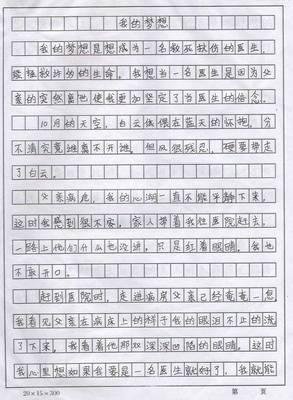 我的梦想
我的梦想是想成为一名救死扶伤的医生,
能拯救许多的生命。我想当一名医生是因为父
亲的突然离世使我更加坚定了当医生的信念。
10月的天空,白云依偎在蓝天的怀抱。分
不清究竟谁离不开谁。但风很残忍,硬要带走
了白云。
父亲病危,我的心湖一直不能平静下来。
这时我感到很不安。家人带着我往医院赶去。
一路上他们什么也没讲,只是红着眼睛。我也
不敢开口。
赶到医院时,走进病房父亲已经奄奄一息
我看见父亲在病床上的样子我的眼泪不止的流
了下来。我看着他那双深深凹陷的眼睛。这时
我心里想如果我要是一名医生就好了,我就能
20×15=300
第 页